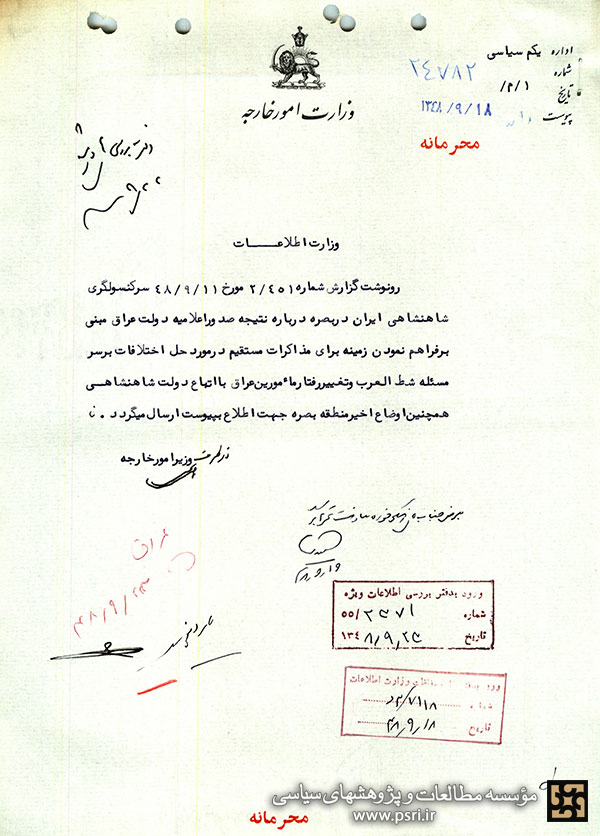 وزارت امور خارجه
اداره یکم سیاسی
شماره ۲۴۷۸۲
/م/۱
تاریخ ۱۳۴۸/۹/۱۸
پیوست دارد
محرمانه
وزارت اطلاعـــات
رونوشت گزارش شماره ۲/۴۵۱ مورخ ۴۸/۹/۱۱ سرکنسولگری
شاهنشاهی ایران در بصره درباره نتیجه صدور اعلامیه دولت عراق مبنی
بر فراهم نمودن زمینه برای مذاکرات مستقیم در مورد حل اختلافات بر سر
مسئله شط العرب و تغییر رفتار مأمورین عراق با اتباع دولت شاهنشاهــی
همچنین اوضاع اخیر منطقه بصره جهت اطلاع بپیوست ارسال میگردد . ن
از طرف وزیر امور خارجه
عراق
۴۸/۹/۲۳
ورود بدفتر بررسی اطلاعات ویژه
شماره ۵۵/۲۳۷۱
تاریخ ۱۳۴۸/۹/۲۳
وزارت اطلاعات
شماره
تاریخ ۴۸/۹/۱۸
مؤسسه مطالعات و پژوهشهای سیاسی
www.psri.ir
محرمانه